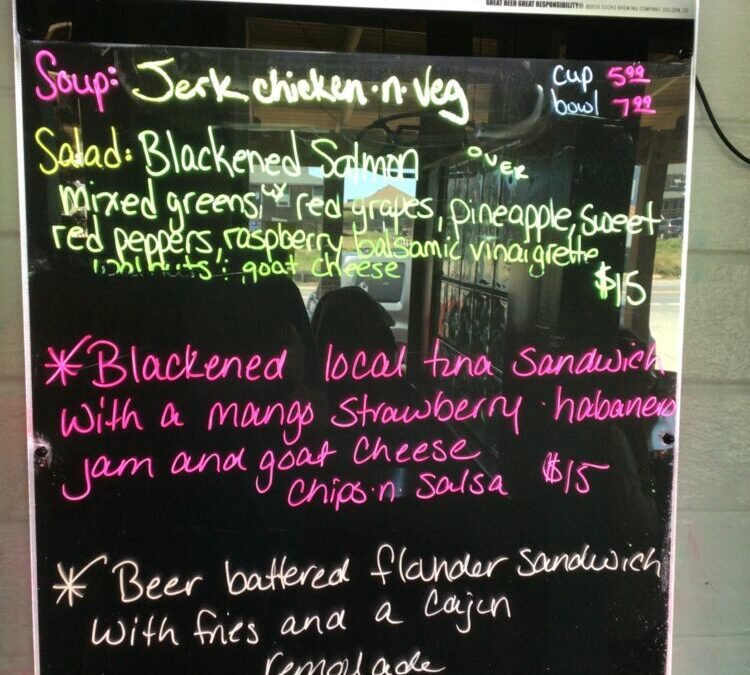 GREAT BEER GREAT RESPONSIBILITY® ©2018 COORS BREWING COMPANY, GOLDEN, CO.
Soup: Jerk chicken·n·veg cup 5.99
bowl 7.99
Salad: Blackened Salmon OVER
mixed greens, w/ red grapes, pineapple, sweet
red peppers, raspberry balsamic vinaigrette
walnuts : goat cheese $15
*Blackened local tuna sandwich
with a mango strawberry · habanero
jam and goat cheese
chips·n·salsa $15
*Beer battered flounder sandwich
with fries and a Cajun
remoulade